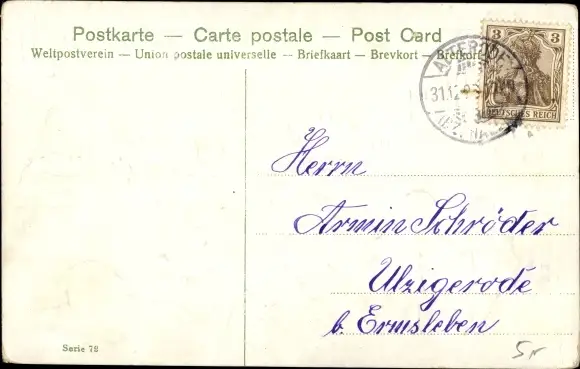 Postkarte — Carte postale — Post Card
Weltpostverein — Union postale universelle — Briefkaart — Brevkort — Brefkort
3 3
DEUTSCHES REICH
ALTERODE
31.12.
Herrn
Armin Schröder
Ulzigerode
b. Ermsleben
Serie 78